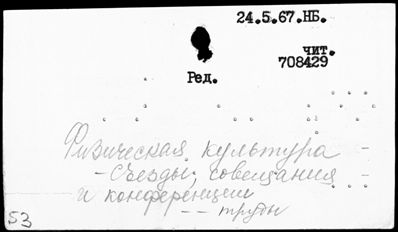 24.5.67.НБ.
чит.
708429
Ред.
Физическая культура
- Съезды, совещания -
и конференции
-- труды
53